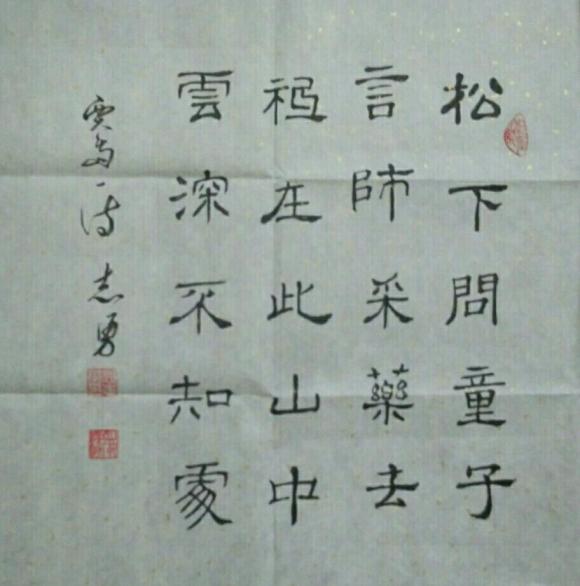 松下問童子
言師采藥去
祗在此山中
雲深不知處
賈島一詩 志勇